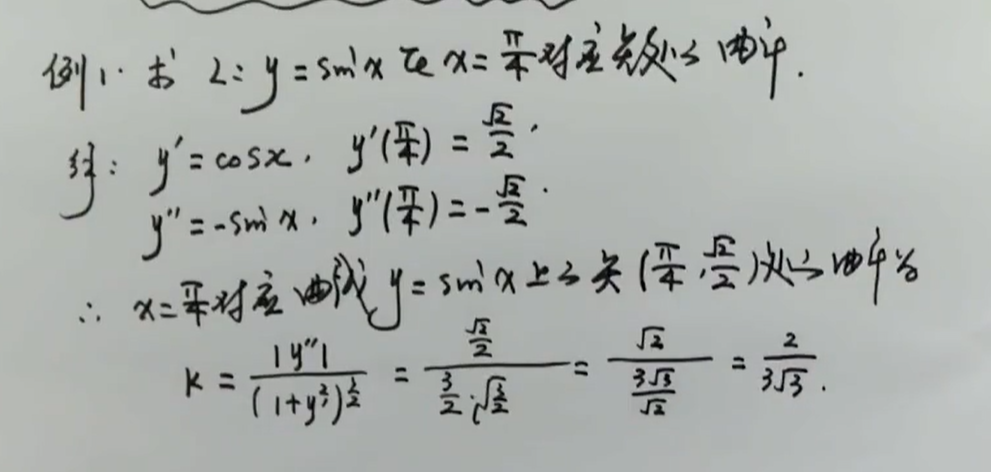 例1. 求 L: y = sinx 在 x = π/4 对应点处的曲率.
解: y' = cosx. y'(π/4) = √2/2.
y'' = -sinx. y''(π/4) = -√2/2.
∴ x = π/4 对应曲线 y = sinx 上的点 (π/4, √2/2) 处的曲率为
K = |y''| / (1+y'²)^(3/2) = (√2/2) / (3/2 · √(3/2)) = √2 / (3√3/√2) = 2/(3√3).